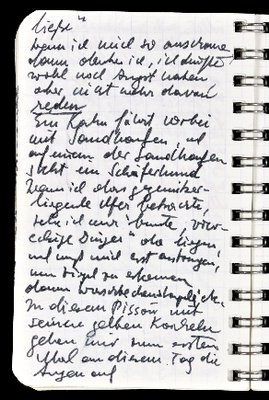 ließe"
wenn ich mich so anschaue
dann denke ich, ich dürfte
wohl noch Angst haben
aber nicht mehr davon
reden
Ein Kahn fährt vorbei
mit Sandhaufen und
auf einem der Sandhaufen
steht ein Schäferhund
Wenn ich das gegenüber-
liegende Ufer betrachte,
sehe ich nur "bunte, vier-
eckige Dinger" da liegen,
und muß mich erst anstrengen,
um Vögel zu erkennen
dann
In diesem Pissoir mit
seinen gelben Kacheln
gehen mir zum ersten
Mal an diesem Tag die
Augen auf